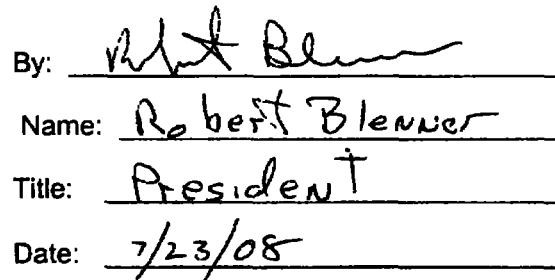 By: Robert Blenner
Name: Robert Blenner
Title: President
Date: 7/23/08